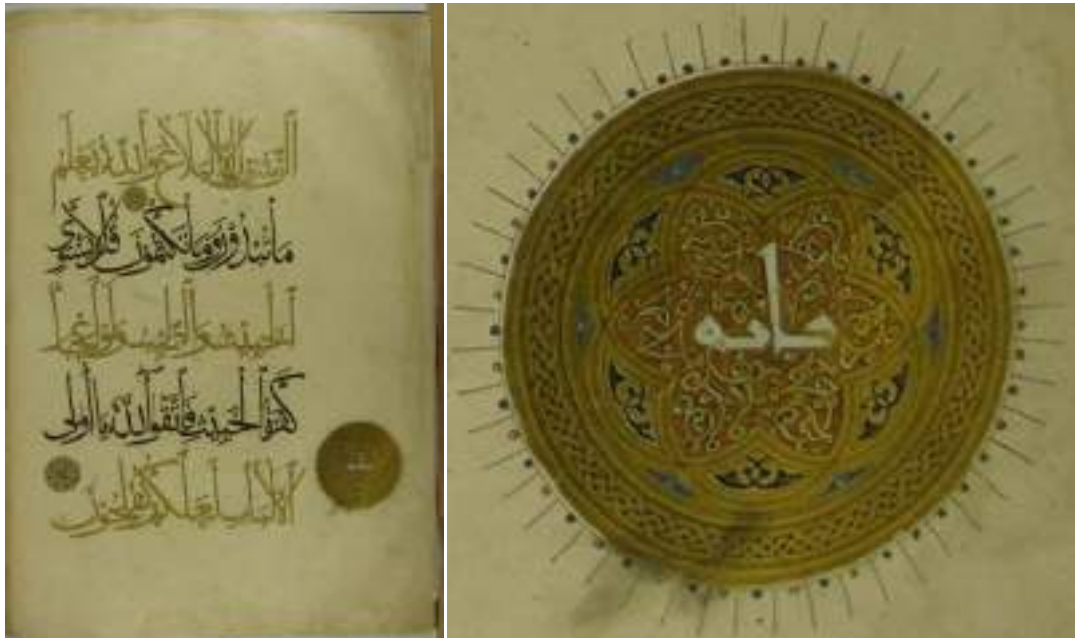 الرسول إلا البلاغ والله يعلم
ما تبدون وما تكتمون قل لا يستوي
الخبيث والطيب ولو أعجبك
كثرة الخبيث فاتقوا الله يا أولي
الألباب لعلكم تفلحون
مائه